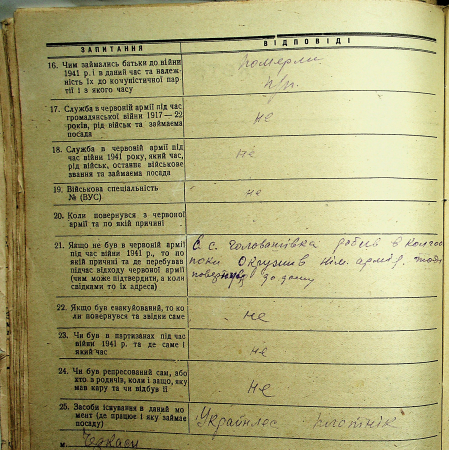 ЗАПИТАННЯ ВІДПОВІДІ
16. Чим займались батьки до війни
1941 р. і в даний час та належ-
ність їх до комуністичної пар-
тії і з якого часу
померли
п/п.
17. Служба в червоній армії під час
громадянської війни 1917—22
років, рід військ та займаєма
посада
не
18. Служба в червоній армії під
час війни 1941 року, який час,
рід військ, останнє військове
звання та займаєма посада
не
19. Військова спеціальність
№ (ВУС)
не
20. Коли повернувся з червоної
армії та по якій причині
21. Якщо не був в червоній армії
під час війни 1941 р., то по
якій причині та де перебував
підчас відходу червоної армії
(чим може підтвердити, а коли
свідками то їх адреса)
с. Голованівка робив в
поки нім. армія, тоді
до дому
22. Якщо був евакуйований, то ко-
ли повернувся та звідки саме
не
23. Чи був в партизанах під час
війни 1941 р. та де саме і
який час
не
24. Чи був репресований сам, або
хто з родичів, коли і защо, яку
мав кару та чи відбув її
не
25. Засоби існування в даний мо-
мент (де працює і яку займає
посаду)
Українлес плотнік
м. Черкаси